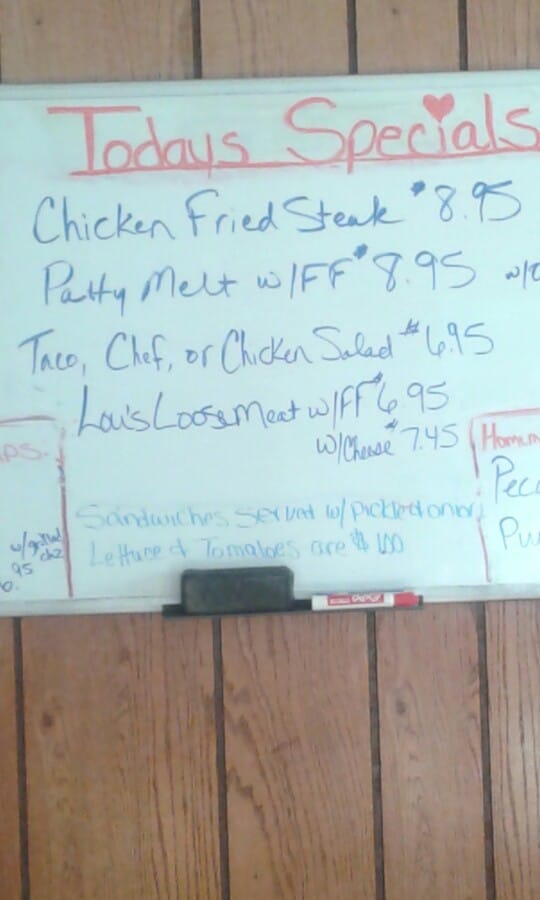 Todays Specials
Chicken Fried Steak $8.95
Patty Melt w/FF $8.95
Taco, Chef, or Chicken Salad $6.95
Lou's Loose Meat w/FF $6.95
w/Cheese $7.45
Sandwiches Served w/pickle & onion
Lettuce & Tomatoes are $1.00
95
EXPO